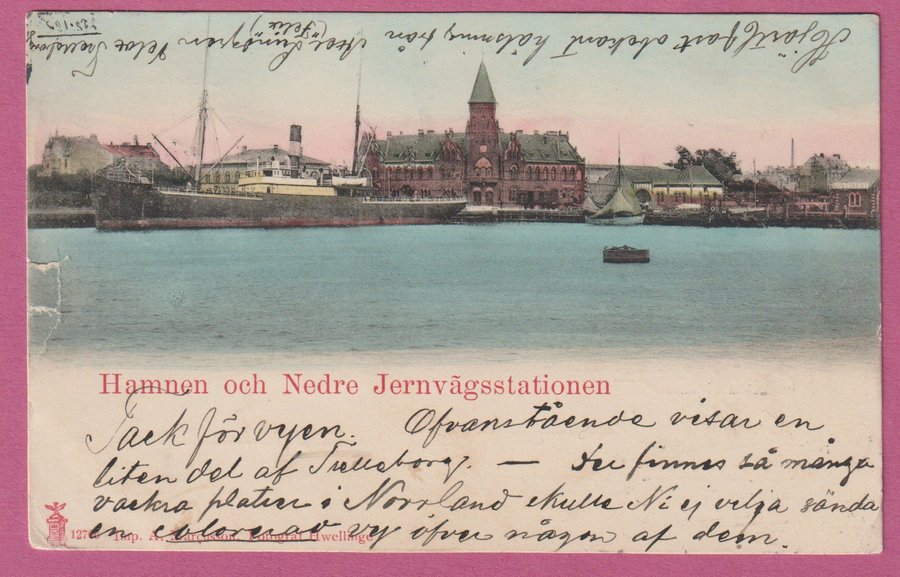 Hjärtl. fast obekant hälsning från
Axel Lundgren Telve Trelleborg
(Telve)
Hamnen och Nedre Jernvägsstationen
Tack för vyen. Ofvanstående visar en
liten del af Trelleborg. — Det finnes så många
vackra platser i Norrland skulle Ni ej vilja sända
en colorerad vy öfver någon af dem.
Imp. A. Fotograf Hwellinge